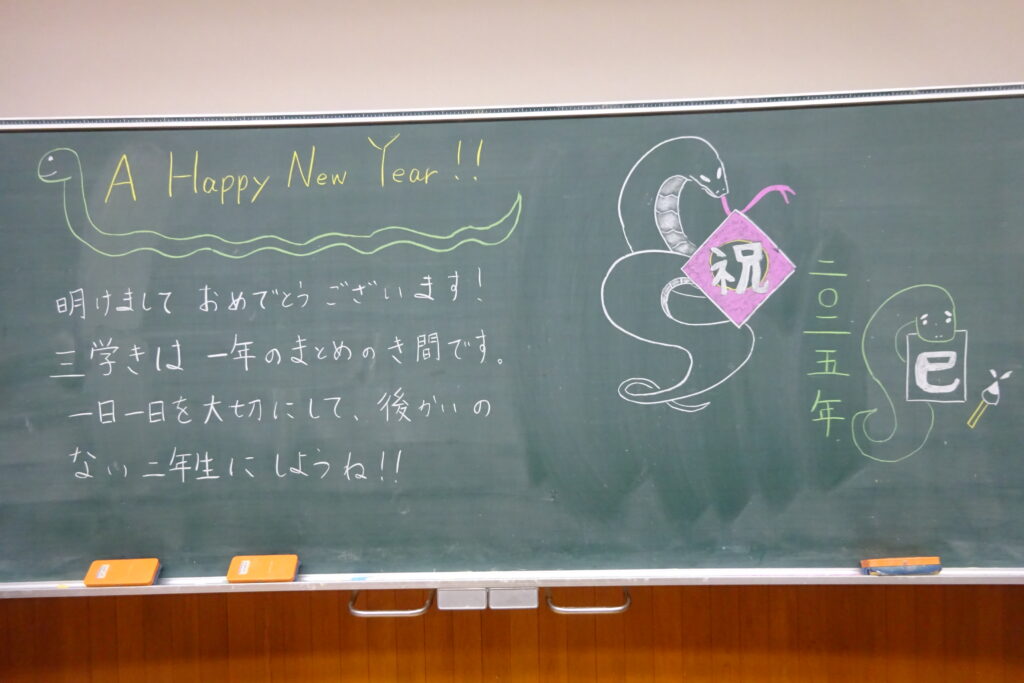 A Happy New Year!!
明けまして おめでとうございます!
三学きは 一年のまとめのき間です。
一日一日を大切にして、後かいの
ない二年生にしようね!!
祝
二〇二五年
巳